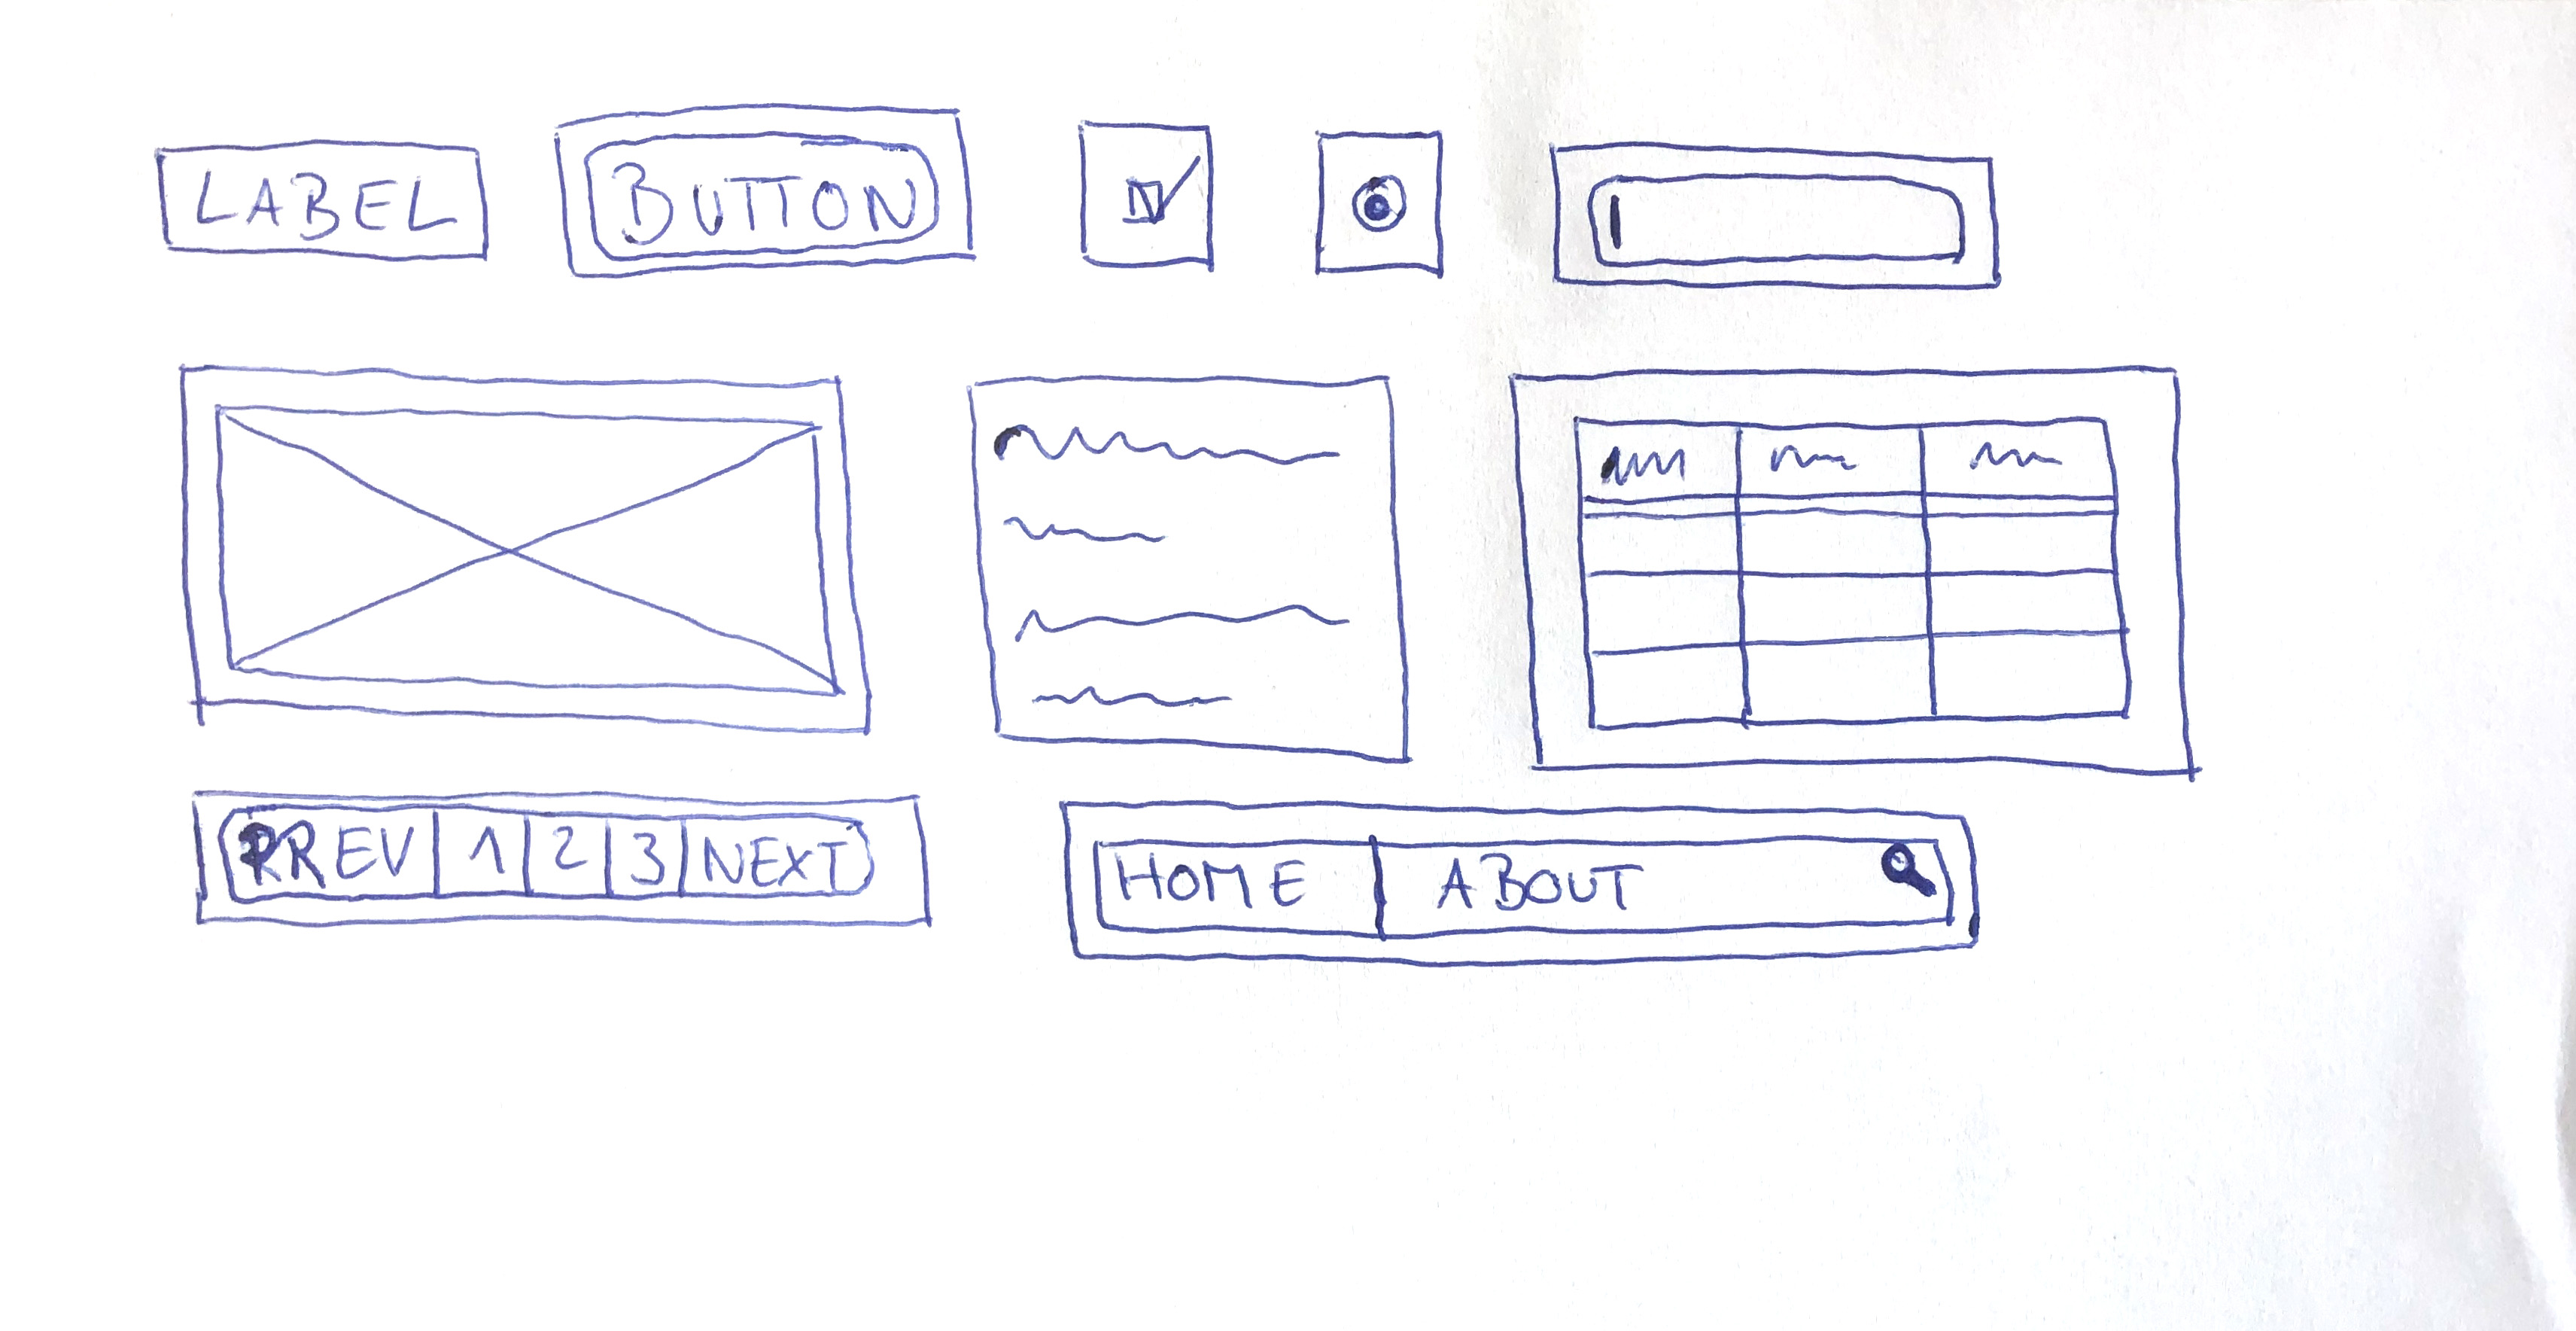 LABEL BUTTON
PREV 1 2 3 NEXT
HOME ABOUT